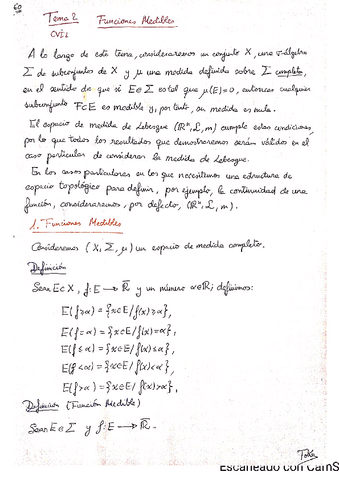 60
Tema 2 Funciones Medibles
CVI1
A lo largo de este tema, consideraremos un conjunto X, una σ-álgebra
Σ de subconjuntos de X y μ una medida definida sobre Σ completa,
en el sentido de que si E∈Σ es tal que μ(E)=0, entonces cualquier
subconjunto F⊂E es medible y, por tanto, su medida es nula.
El espacio de medida de Lebesgue (ℝⁿ, L, m) cumple estas condiciones,
por lo que todos los resultados que demostraremos serán válidos en el
caso particular de considerar la medida de Lebesgue.
En los casos particulares en los que necesitemos una estructura de
espacio topológico para definir, por ejemplo, la continuidad de una
función, consideraremos, por defecto, (ℝⁿ, L, m).
1. Funciones Medibles
Consideremos (X, Σ, μ) un espacio de medida completo.
Definición
Sean E⊂X, f: E → ℝ̄ y un número α∈ℝ; definimos:
E(f≥α) = {x∈E / f(x)≥α},
E(f=α) = {x∈E / f(x)=α},
E(f≤α) = {x∈E / f(x)≤α},
E(f<α) = {x∈E / f(x)<α},
E(f>α) = {x∈E / f(x)>α},
Definición (Función Medible)
Sean E∈Σ y f: E → ℝ̄.
Escaneado con CamS